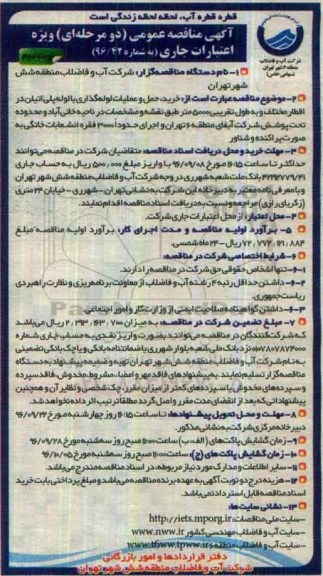 قطره قطره آب، لحظه لحظه زندگی است
آگهی مناقصه عمومی (دو مرحله‌ای) ویژه
اعتبارات جاری (به شماره ۹۶/۴۲)
شرکت آب و فاضلاب
منطقه ۶ شهر تهران
(سهامی خاص)
نوبت دوم
۱- نام دستگاه مناقصه‌گزار: شرکت آب و فاضلاب منطقه شش
شهر تهران
۲- موضوع مناقصه عبارت است از: خرید، حمل و عملیات لوله‌گذاری با لوله پلی اتیلن در
اقطار مختلف و به طول تقریبی ۵۰۰۰ متر طبق نقشه و مشخصات در ناحیه فنی آباد و محدوده
تحت پوشش شرکت آبفای منطقه ۶ تهران و اجرای حدوداً ۳۰۰ فقره انشعابات خانگی به
صورت پراکنده و شناور
۳- مهلت خرید و محل دریافت اسناد مناقصه: متقاضیان شرکت در مناقصه می‌توانند
حداکثر تا ساعت ۱۶:۱۵ مورخ ۹۶/۰۹/۰۸ با واریز مبلغ ۵۰۰,۰۰۰ ریال به حساب جاری
بانک ملت شعبه شهرری در وجه شرکت آب و فاضلاب منطقه شش شهر تهران
و با معرفی‌نامه معتبر به دبیرخانه این شرکت به نشانی تهران - شهرری - خیابان ۲۴ متری
(زکریای رازی) مراجعه و نسبت به دریافت اسناد مناقصه اقدام نمایند.
۴- محل اعتبار: از محل اعتبارات جاری شرکت.
۵- برآورد اولیه مناقصه و مدت اجرای کار: برآورد اولیه مناقصه مبلغ
۷۲,۷۷۲,۱۲۱,۸۸۴ ریال - ۲۴ ماه شمسی.
۶- شرایط اختصاصی شرکت در مناقصه:
۶-۱- تنها اشخاص حقوقی حق شرکت در مناقصه را دارند.
۶-۲- داشتن حداقل رتبه ۴ رشته آب و فاضلاب از معاونت برنامه‌ریزی و نظارت راهبردی
ریاست جمهوری.
۶-۳- داشتن گواهینامه صلاحیت ایمنی از وزارت کار و امور اجتماعی
۷- مبلغ تضمین شرکت در مناقصه: به میزان ۲,۳۱۳,۱۶۳,۷۰۰ ریال می‌باشد
که شرکت‌کنندگان در مناقصه می‌توانند بصورت واریز نقدی به حساب جاری شماره
نزد بانک ملی شعبه بلوار شهرری یا ضمانتنامه بانکی و یا چک بانکی تضمینی
به نام شرکت آب و فاضلاب منطقه شش شهر تهران تهیه و ضمیمه پیشنهاد به دستگاه
مناقصه‌گزار تسلیم نمایند. به پیشنهادهای فاقد مهر و امضا، مشروط، مخدوش، فاقد سپرده
و سپرده‌های مخدوش یا سپرده‌های کمتر از میزان مقرر، چک شخصی و نظایر آن و همچنین
پیشنهاداتی که بعد از انقضای مدت مقرر واصل گردد مطلقا ترتیب اثر داده نخواهد شد.
۸- مهلت و محل تحویل پیشنهادها: تا ساعت ۱۶:۱۵ روز چهارشنبه مورخ ۹۶/۰۹/۲۲
دبیرخانه مرکزی شرکت به نشانی مذکور.
۹- زمان گشایش پاکت‌های (الف، ب) ساعت ۱۱:۰۰ صبح روز سه‌شنبه مورخ ۹۶/۰۹/۲۸
۱۰- زمان گشایش پاکت‌های (ج): ساعت ۱۱:۰۰ صبح روز سه‌شنبه مورخ ۹۶/۱۰/۰۵
۱۱- سایر اطلاعات و مدارک مورد نیاز مربوطه، در اسناد مناقصه مندرج می‌باشد.
۱۲- هزینه درج دو نوبت آگهی به عهده برنده مناقصه می‌باشد و مبلغ پرداختی بابت خرید
اسناد مناقصه قابل استرداد نمی‌باشد.
۱۳- نشانی سایت‌ها:
-سایت ملی مناقصات: http://iets.mporg.ir
-سایت آب و فاضلاب مهندسی کشور www.nww.ir
-سایت آب و فاضلاب منطقه ۶ www.tfww.tpww.ir
دفتر قراردادها و امور بازرگانی
شرکت آب و فاضلاب منطقه شش شهر تهران